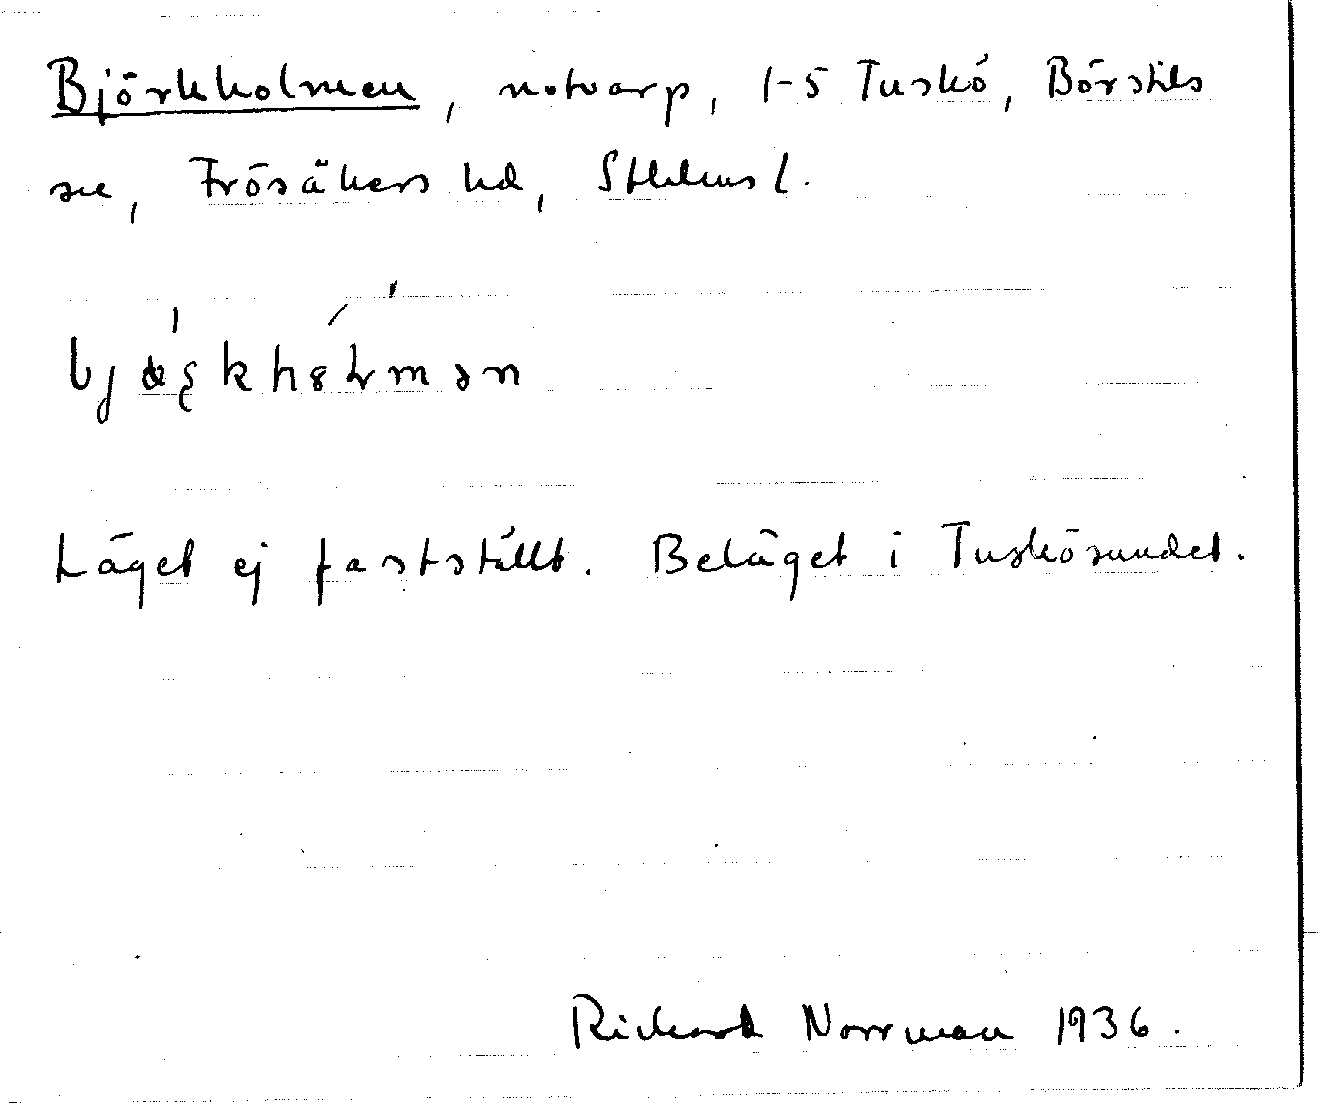 Björkholmen, notvarp, 1-5 Tuskö, Börstils
sn, Frösåkers hd, Sthlms l.
Läget ej fastställt. Beläget i Tuskösundet.
Rickard Norrman 1936.